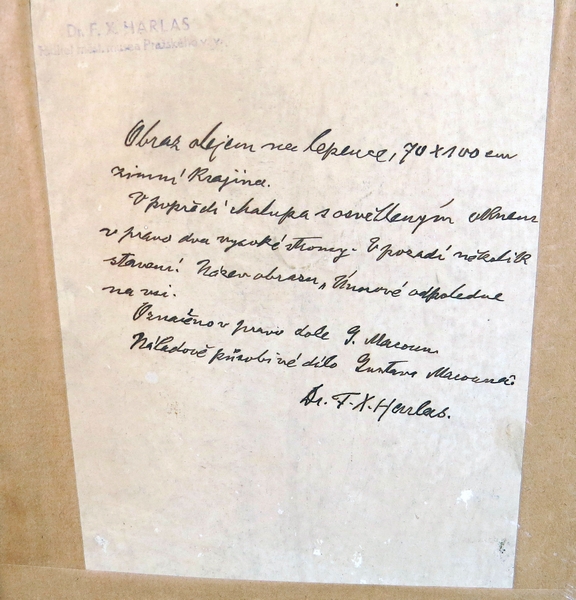 Dr. F. X. HARLAS
Ředitel musea Pražského v. v.
Obraz olejem na lepence, 70 x 100 cm
zimní krajina.
V popředí chalupa s osvětleným oknem
v pravo dva vysoké stromy. V pozadí několik
stavení. Název obrazu „Únorové odpoledne
na vsi.
Označeno v pravo dole G. Macoun.
Náladově působivé dílo Gustava Macouna.
Dr. F. X. Harlas.